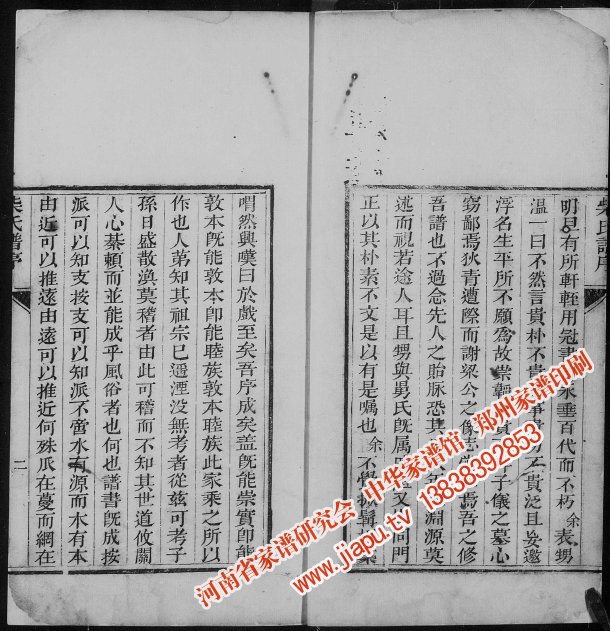 柴氏譜序
明旦有所軒輊用冠書永垂百代而不朽余表甥
溫一曰不然言貴朴不貴爭貴乃不貴泛且妄邀
浮名生平所不願為故崇韜子儀之墓心
竊鄙焉狄青遭際而謝梁公之像志焉吾之修
吾譜也不過念先人之胎脉恐其淵源莫
述而視若途人耳且甥與舅氏既属又同門
正以其朴素不文是以有是嘱也余不學
喟然興嘆曰於戲至矣吾序成矣盖既能崇實卽能
敦本既能敦本卽能睦族敦本睦族此家乘之所以
作也人苐知其祖宗已遥湮没無考者從兹可考子
孫日盛散渙莫稽者由此可稽而不知其世道攸關
人心綦頼而並能成乎風俗者也何也譜書既成按
派可以知支按支可以知派不啻水有源而木有本
由近可以推遠由遠可以推近何殊瓜在蔓而網在
柴氏譜序
二
河南省家谱研究会 中华家谱馆 郑州家谱印刷
www.jiapu.tv 13838392853